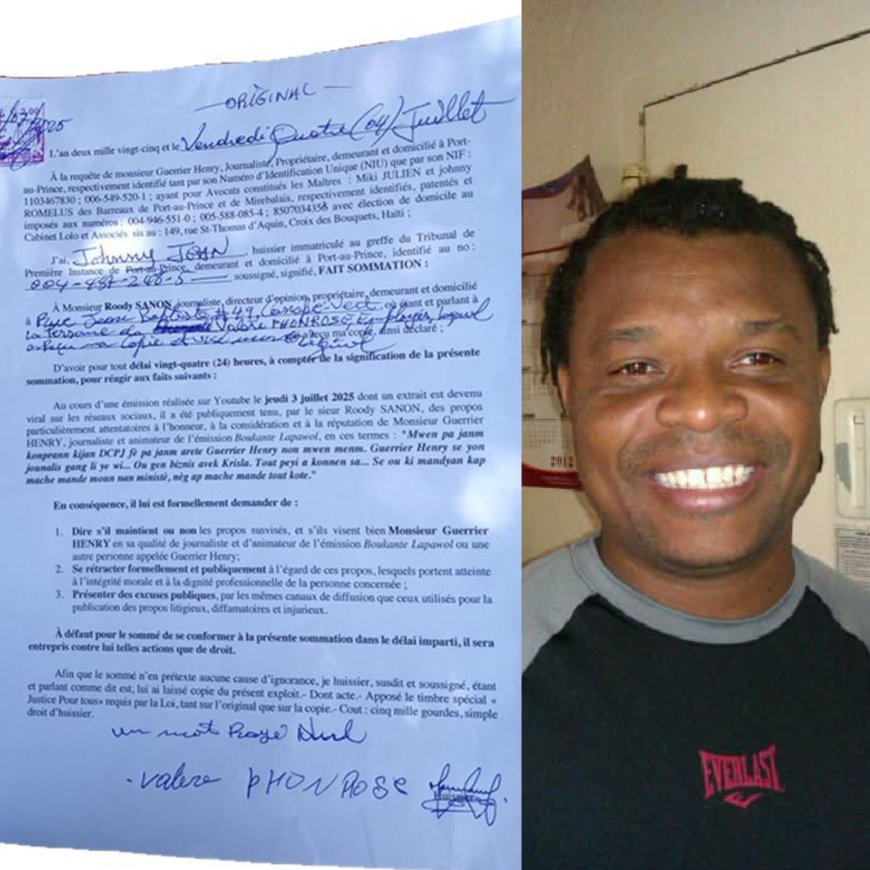 ORIGINAL
2025
L'an deux mille vingt-cinq et le Vendredi Quatre (04) Juillet
À la requête de monsieur Guerrier Henry, Journaliste, Propriétaire, demeurant et domicilié à Port-
au-Prince, respectivement identifié tant par son Numéro d'Identification Unique (NIU) que par son NIF :
1103467830 ; 006-549-520-1 ; ayant pour Avocats constitués les Maîtres : Miki JULIEN et johnny
ROMELUS des Barreaux de Port-au-Prince et de Mirebalais, respectivement identifiés, patentés et
imposés aux numéros : 004-946-551-0 ; 005-588-085-4 ; 8507034358 avec élection de domicile au
Cabinet Lolo et Associés sis au : 149, rue St-Thomas d'Aquin, Croix des Bouquets, Haïti ;
J'ai, Johnny JEAN, huissier immatriculé au greffe du Tribunal de
Première Instance de Port-au-Prince, demeurant et domicilié à Port-au-Prince, identifié au no :
soussigné, signifié, FAIT SOMMATION :
À Monsieur Roody SANON, journaliste, directeur d'opinion, propriétaire, demeurant et domicilié
à Rue Jean Baptiste # 49, Canapé-Vert, où étant et parlant à
la personne de Valère PHONROSE Employé, lequel
a reçu ma copie et ainsi déclaré ;
D'avoir pour tout délai vingt-quatre (24) heures, à compter de la signification de la présente
sommation, pour réagir aux faits suivants :
Au cours d'une émission réalisée sur Youtube le jeudi 3 juillet 2025 dont un extrait est devenu
viral sur les réseaux sociaux, il a été publiquement tenu, par le sieur Roody SANON, des propos
particulièrement attentatoires à l'honneur, à la considération et à la réputation de Monsieur Guerrier
HENRY, journaliste et animateur de l'émission Boukante Lapawòl, en ces termes : "Mwen pa janm
konprann kijan DCPJ fè pa janm arete Guerrier Henry non mwen menm. Guerrier Henry se yon
jounalis gang li ye wi... Ou gen biznis avek Krisla. Tout peyi a konnen sa... Se ou ki mandyan kap
mache mande moun nan ministè, nèg ap mache mande tout kote."
En conséquence, il lui est formellement demander de :
1. Dire s'il maintient ou non les propos susvisés, et s'ils visent bien Monsieur Guerrier
HENRY en sa qualité de journaliste et d'animateur de l'émission Boukante Lapawol ou une
autre personne appelée Guerrier Henry;
2. Se rétracter formellement et publiquement à l'égard de ces propos, lesquels portent atteinte
à l'intégrité morale et à la dignité professionnelle de la personne concernée ;
3. Présenter des excuses publiques, par les mêmes canaux de diffusion que ceux utilisés pour la
publication des propos litigieux, diffamatoires et injurieux.
À défaut pour le sommé de se conformer à la présente sommation dans le délai imparti, il sera
entrepris contre lui telles actions que de droit.
Afin que le sommé n'en prétexte aucune cause d'ignorance, je huissier, susdit et soussigné, étant
et parlant comme dit est, lui ai laissé copie du présent exploit.- Dont acte.- Apposé le timbre spécial «
Justice Pour tous» requis par la Loi, tant sur l'original que sur la copie.- Cout : cinq mille gourdes, simple
droit d'huissier.
un mot Rayé Nul
valere PHONROSE
2012
EVERLAST